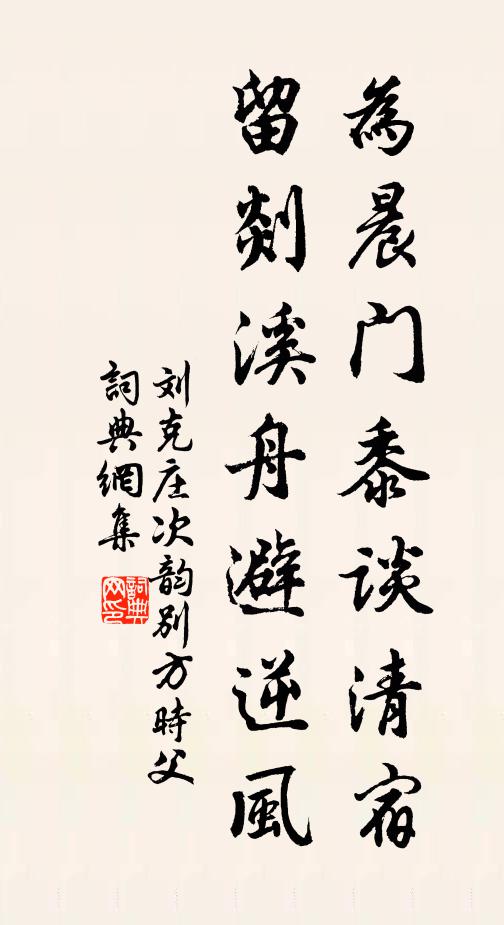 為晨門黍談清宿
留剡溪舟避逆風
刘克庄次韵別方時父
詞典網集
詞典网印